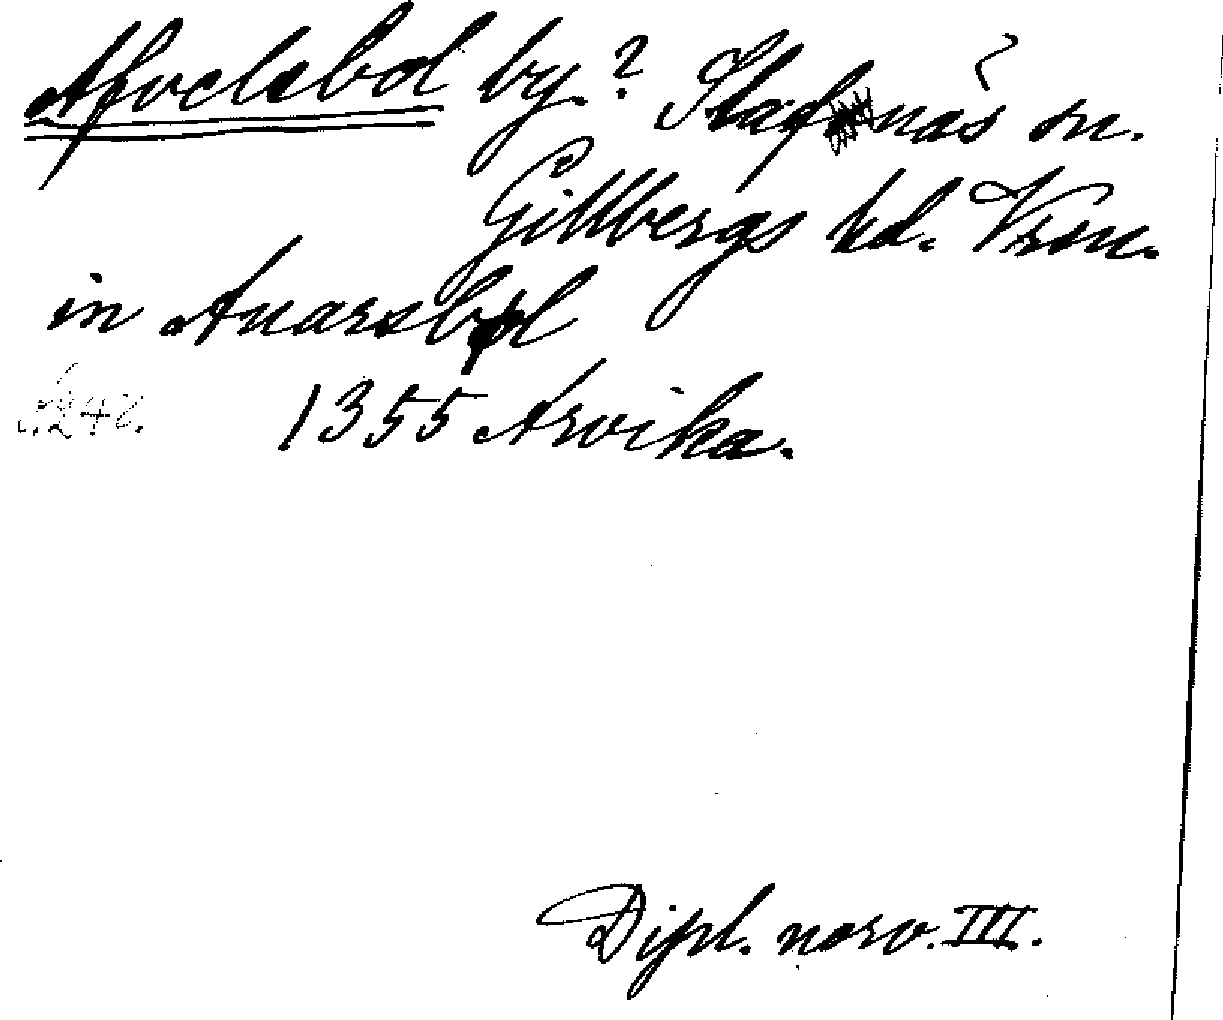 Afvelsbol by.? Stafnäs sn.
Gillbergs hd. Vrml.
in Auarsbol
1355 Arvika.
Dipl. norv. III.